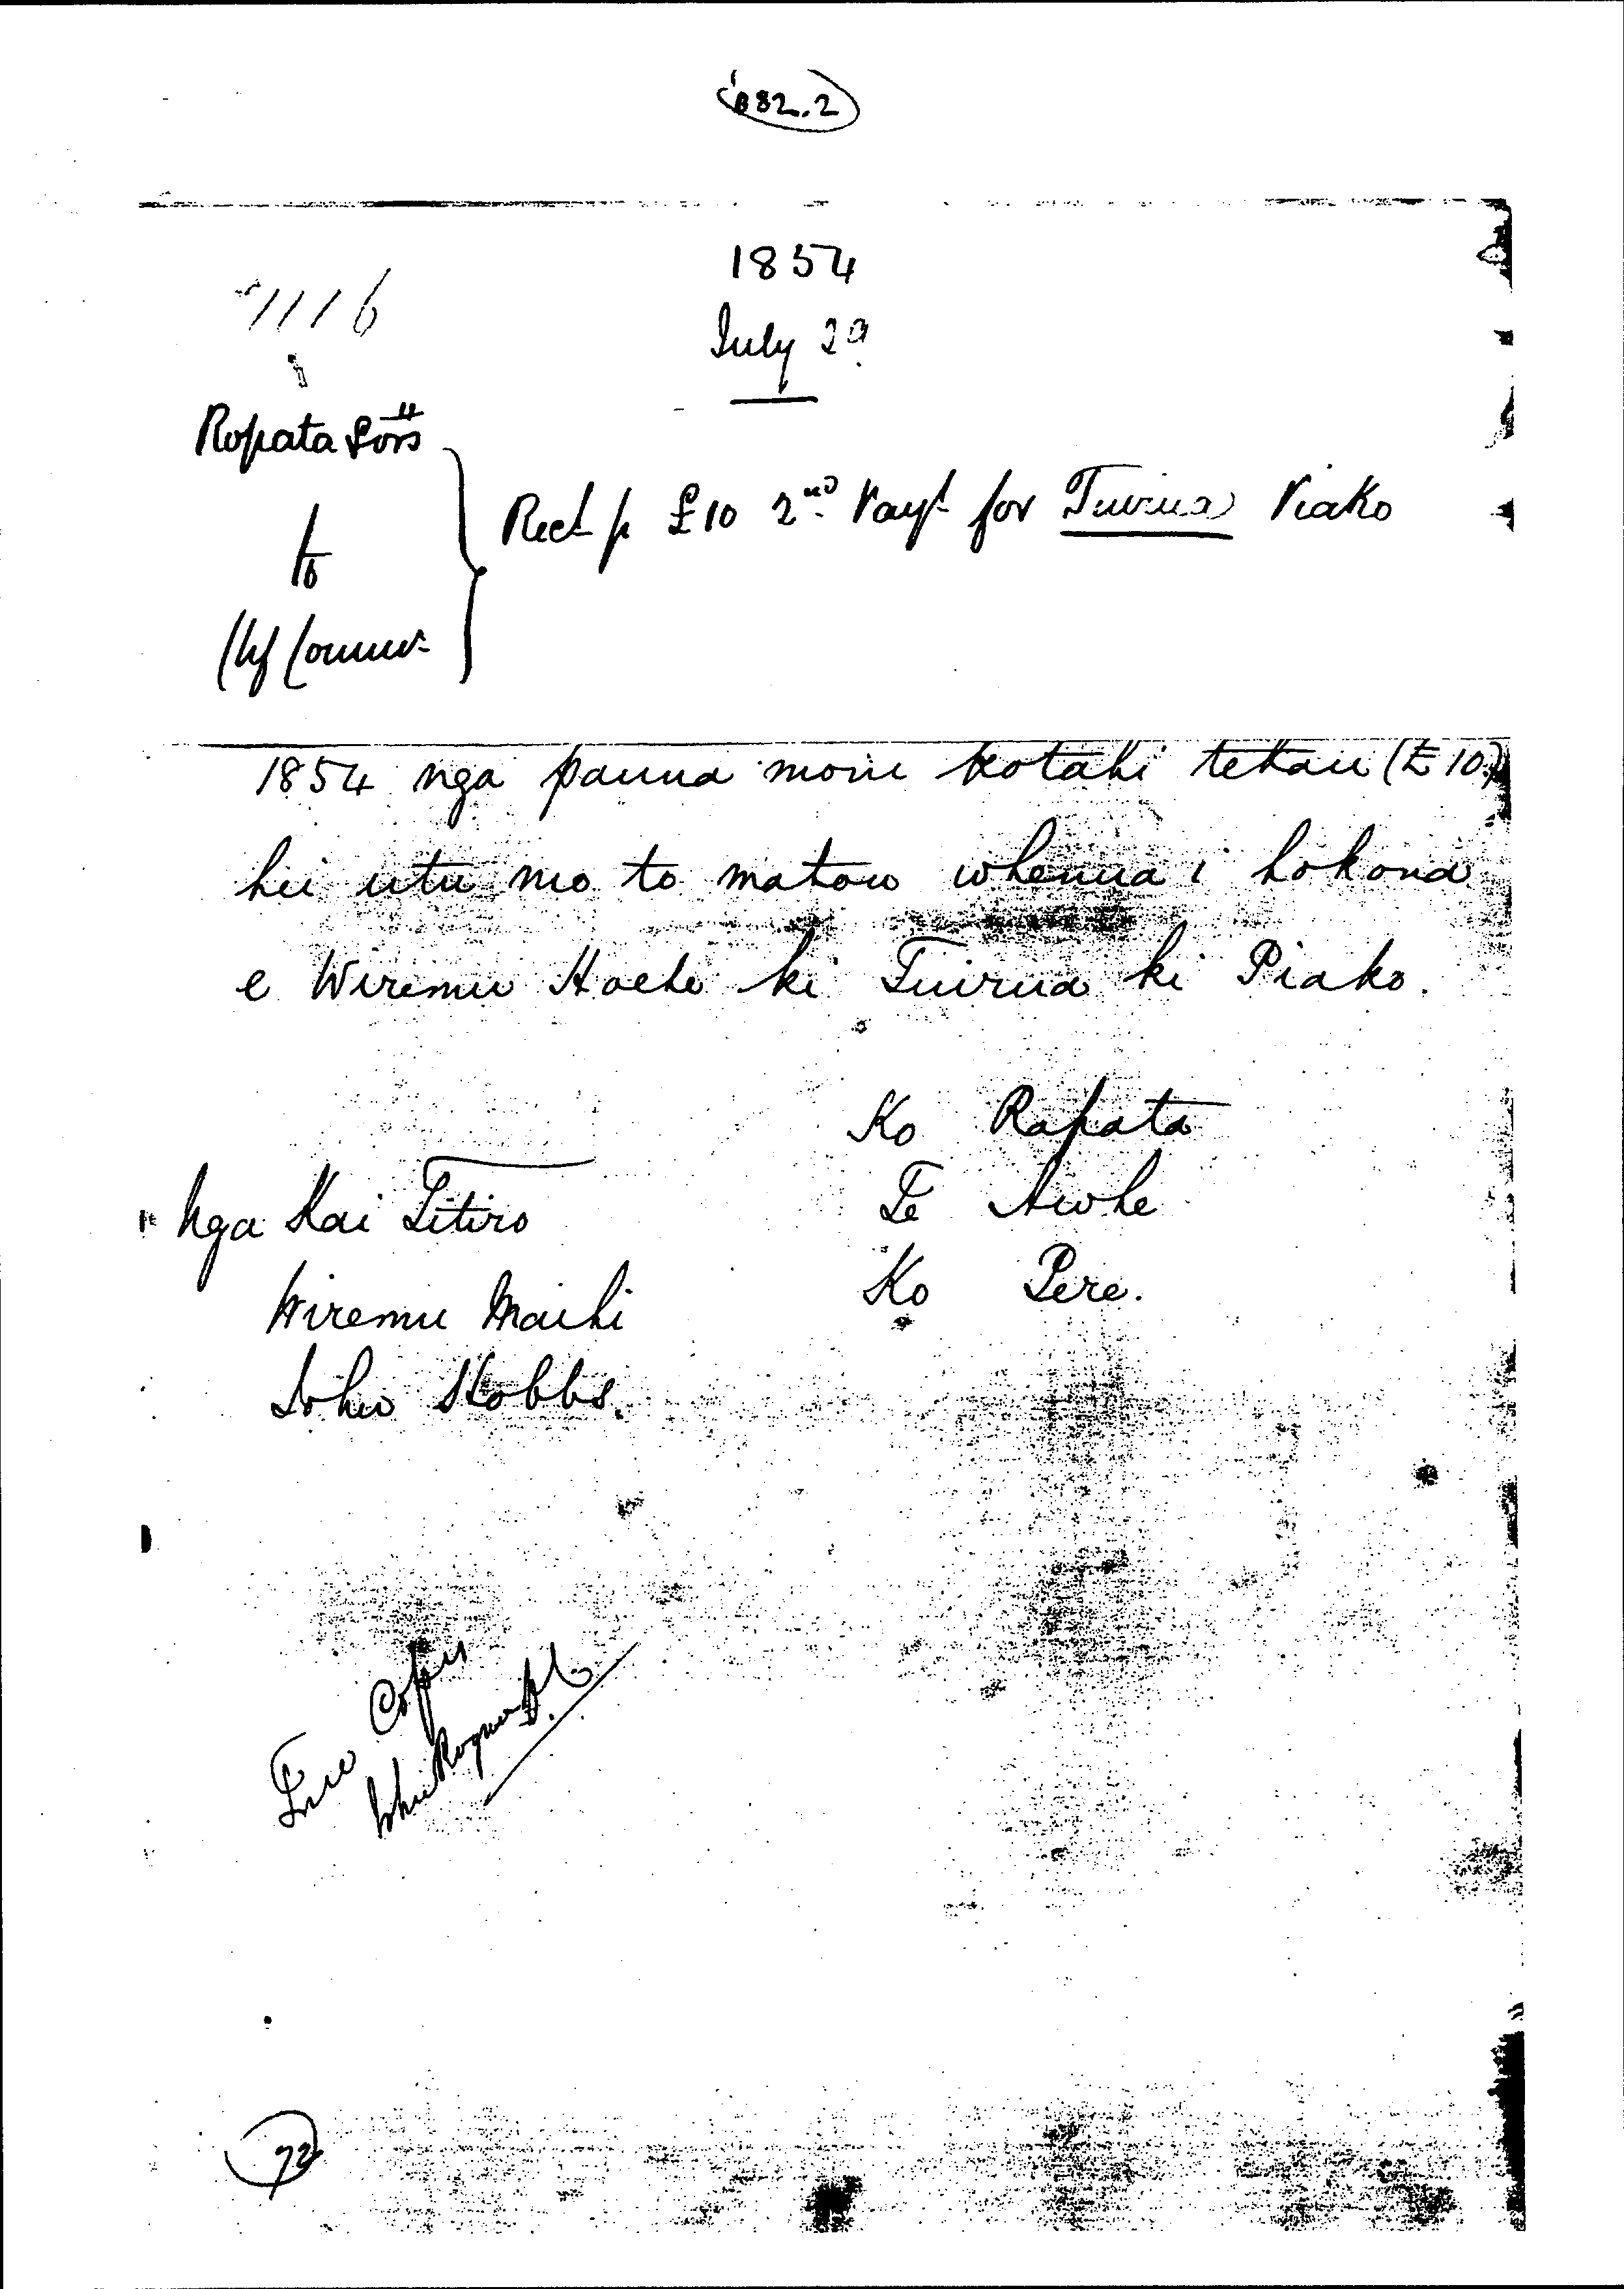 82.2
1854
1116
July 29
Ropata
to
Rect £10 2nd Payt for Tuirua Piako
1854 nga pauna moni kotahi tekau (£10.)
hei utu mo to matou whenua i hokona
e Wiremu Hoete ki Tuirua ki Piako.
Ko Rapata
Te Awhe
Ko Pere.
Nga Kai Titiro
Wiremu Maihi
John Hobbs.
True Copy
John Rogan
72